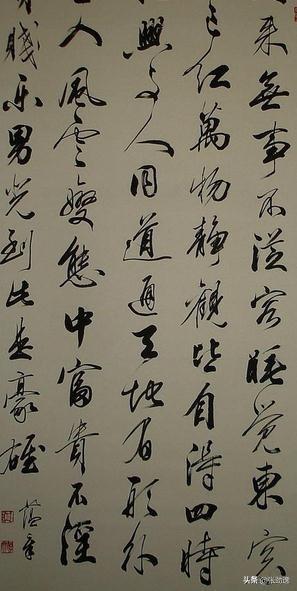 来無事不從容睡覺東窗
已紅萬物靜觀皆自得四時
興与人同道通天地有形外
入風雲變態中富貴不淫
賤乐男兒到此是豪雄
头条